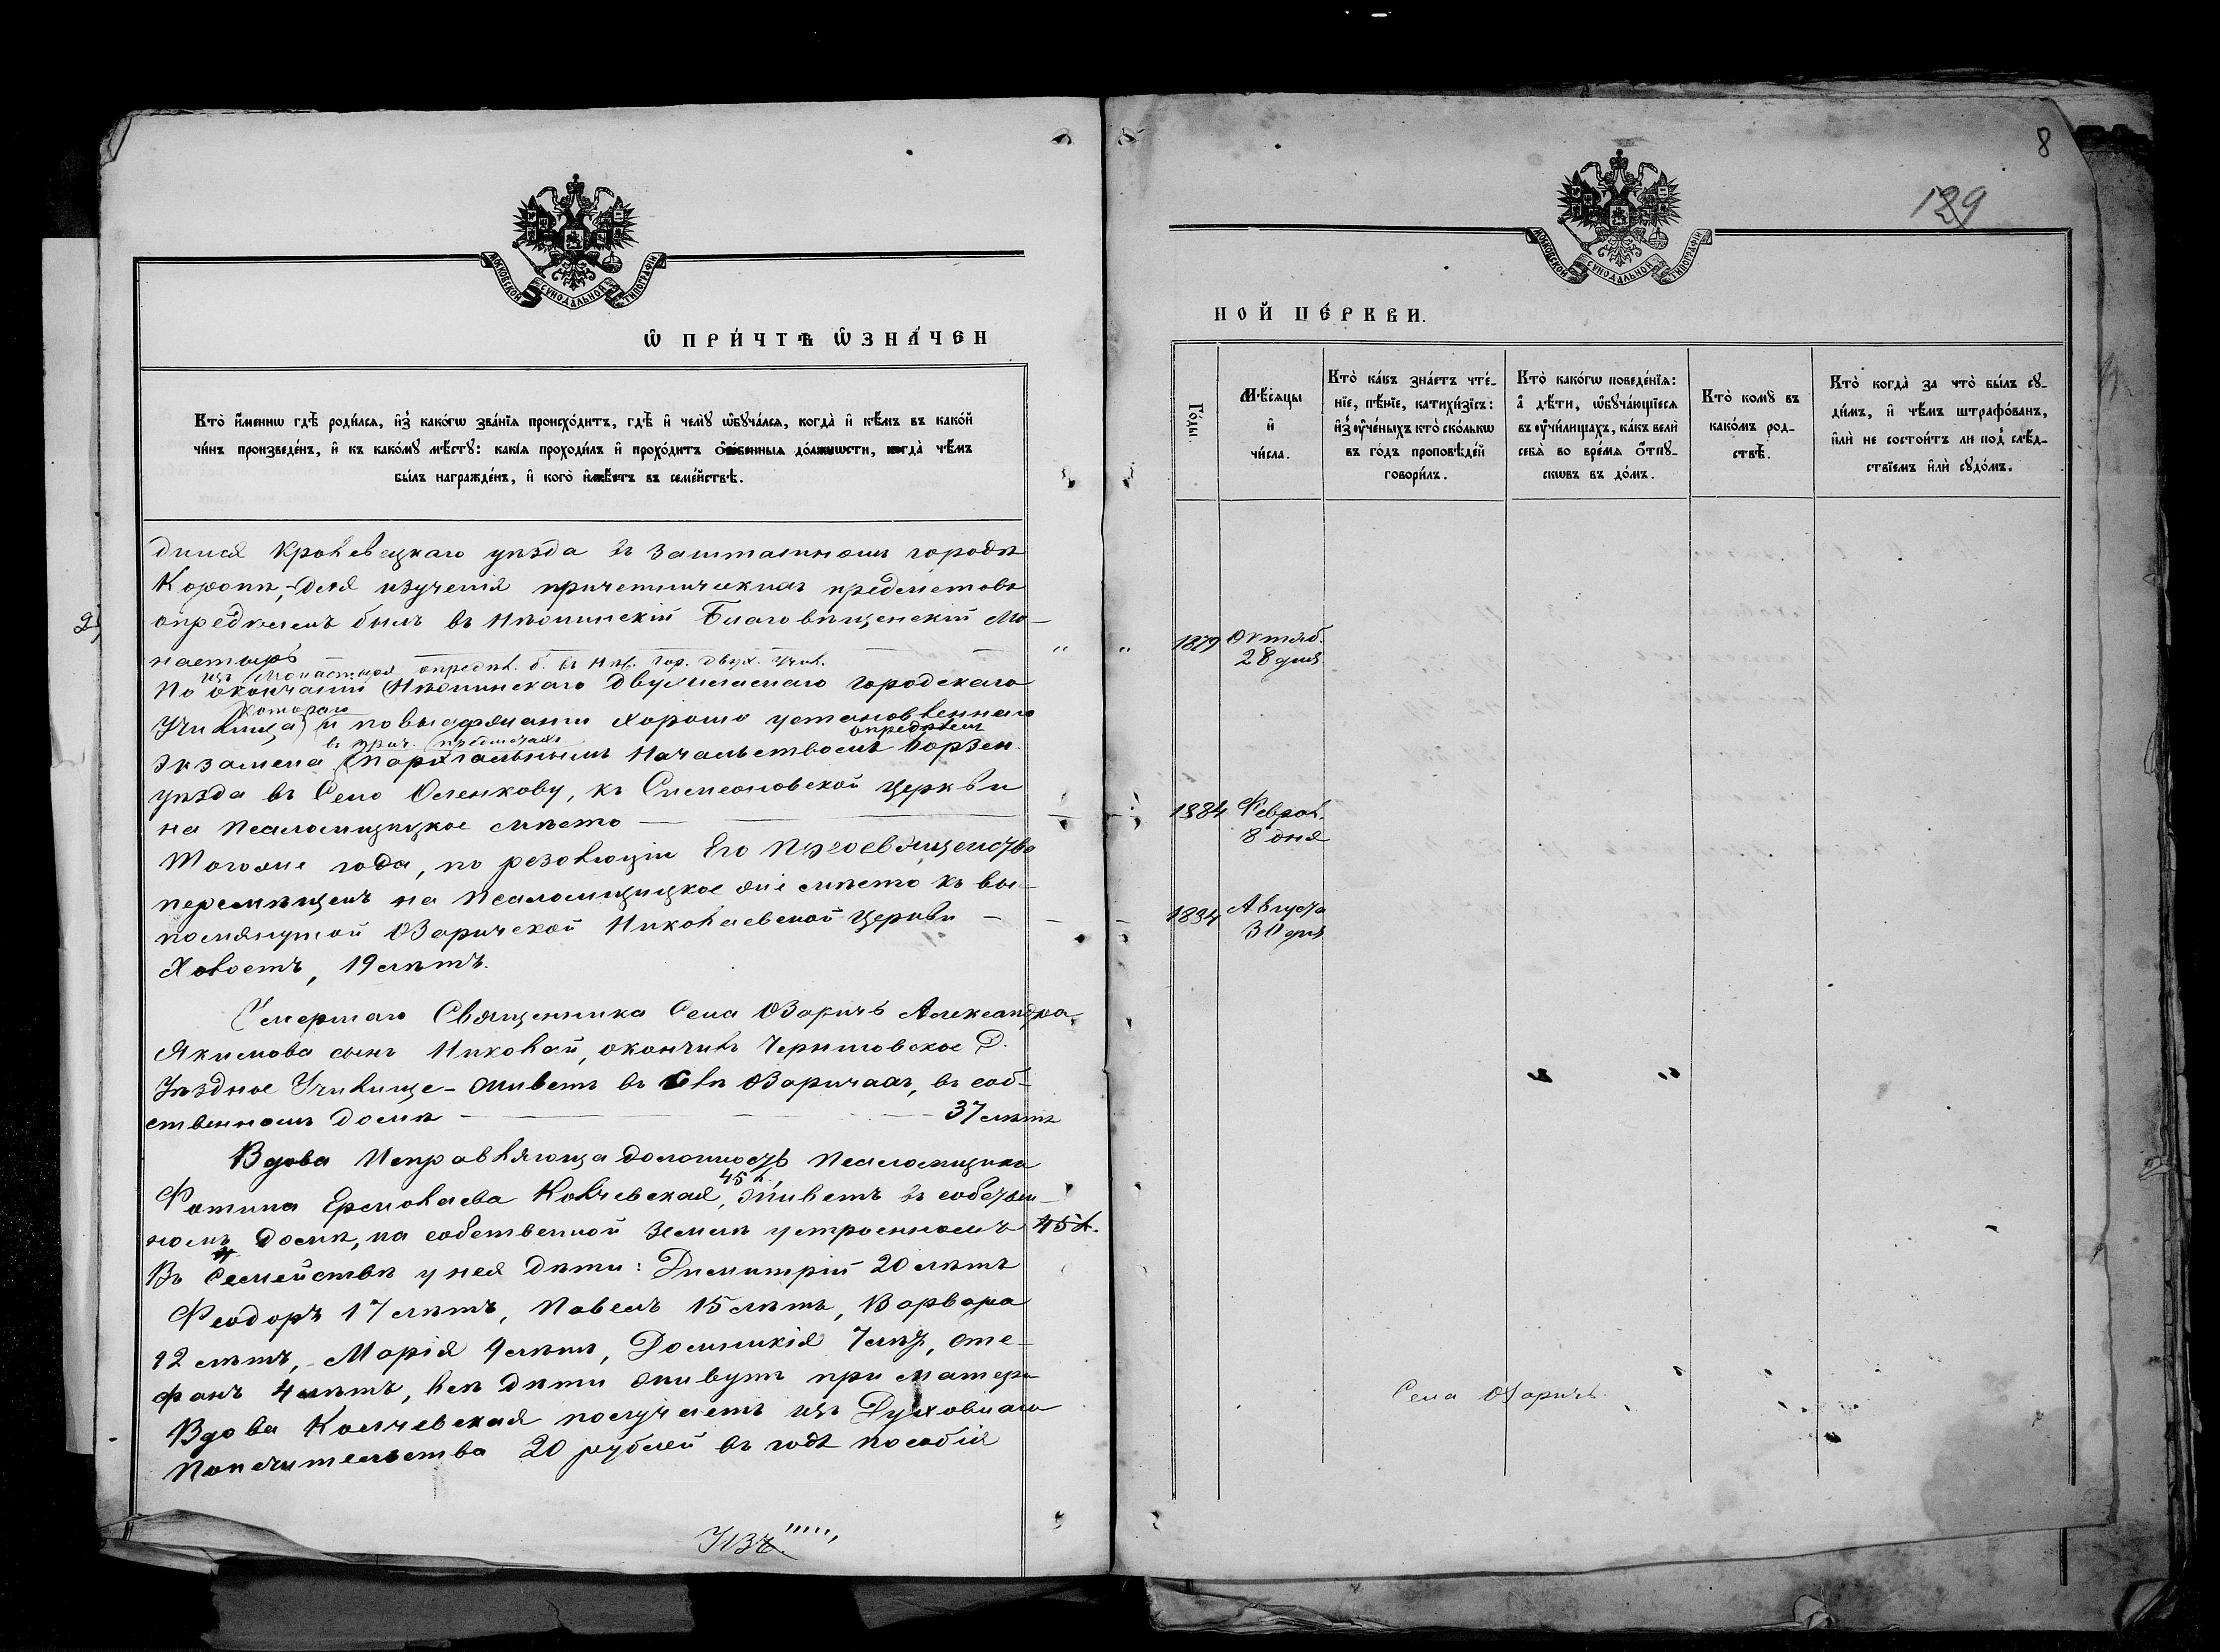 МОСКОВСКОЙ СѴНОДАЛЬНОЙ ТИПОГРАФІИ
Ѡ ПРИ́ЧТѢ ѠЗНА́ЧЕН
Кто̀ и҆́меннѡ гдѣ̀ роди́лсѧ, и҆з̾ како́гѡ зва́нїѧ происхо́дитъ, гдѣ̀ и҆ чемꙋ̀ ѡ҆бꙋча́лсѧ, когда̀ и҆ кѣ́мъ въ како́й
чи́нъ произведе́нъ, и҆ къ како́мꙋ мѣ́стꙋ: какі́ѧ проходи́лъ и҆ прохо́дитъ ѻ҆со́бенныѧ до́лжнѡсти, когда̀ чѣ́мъ
бы́лъ награжде́нъ, и҆ кого̀ и҆мѣ́етъ въ семе́йствѣ.
дился Кролевецкаго уѣзда въ заштатномъ городѣ
Коропѣ,- для изученія причетническихъ предметовъ
опредѣленъ былъ въ Нѣжинскій Благовѣщенскій Мо-
настырь
изъ Монастыря опредѣл. б. въ Нѣж. гор. двух. Учил.
По окончаніи Нѣжинскаго двухкласнаго городскаго
котораго
Училища и по выдержаніи хорошо установленнаго
въ прич. предметахъ опредѣленъ
экзамена Епархіальнымъ Начальствомъ Борзен.
уѣзда въ Село Оленковку, къ Симеоновской церкви
на Псаломщицкое мѣсто
Тогоже года, по резолюціи Его Преосвященства
перемѣщенъ на Псаломщицкое же мѣсто къ вы-
помянутой Озаричской Николаевской Церкви
Холостъ, 19 лѣтъ.
Умершаго Священника Села Озаричъ Александра
Якимова сынъ Николай, окончилъ Черниговское Д.
Уѣздное Училище - живетъ въ с-лѣ Озаричахъ, въ соб-
ственномъ домѣ 37 лѣтъ
Вдова Исправляюща должность Псаломщика
45 л.
Фотина Ермолаева Колчевская, живетъ въ собствен-
номъ домѣ, на собственной землѣ устроенномъ 45 л.
Въ Семействѣ у нея дѣти: Димитрій 20 лѣтъ
Феодоръ 17 лѣтъ, Павелъ 15 лѣтъ, Варвара
12 лѣтъ, Марія 9 лѣтъ, Домникія 7 лѣтъ, Сте-
фанъ 4 лѣтъ, всѣ дѣти живутъ при матери
Вдова Колчевская получаетъ изъ Духовнаго
Попечительства 20 рублей въ годъ пособія
8
129
МОСКОВСКОЙ СѴНОДАЛЬНОЙ ТИПОГРАФІИ
НОЙ ЦЕ́РКВИ.
Го́ды.
Мѣ́сѧцы
и҆
чи́сла.
Кто̀ ка́къ зна́етъ чте́-
нїе, пѣ́нїе, катихи́зїсъ:
и҆з̾ ᲂу҆че́ныхъ кто̀ ско́лькѡ
въ го́дъ проповѣ́дей
говори́лъ.
Кто̀ како́гѡ поведе́нїѧ:
а҆ дѣ́ти, ѡ҆бꙋча́ющїесѧ
въ ᲂу҆чи́лищахъ, ка́къ вели̑
себѧ̀ во вре́мѧ ѻ҆тпꙋ-
скѡвъ въ до́мъ.
Кто̀ комꙋ̀ въ
како́мъ род-
ствѣ̀.
Кто̀ когда̀ за что̀ бы́лъ сꙋ-
ди́мъ, и҆ чѣ́мъ штрафо́ванъ,
и҆лѝ не состои́тъ ли под̾ слѣ́д-
ствїемъ и҆лѝ сꙋдо́мъ.
1879 Октяб.
28 дня
1884 Феврал.
8 дня
1884 Августа
30 дня
Села Озаричъ.